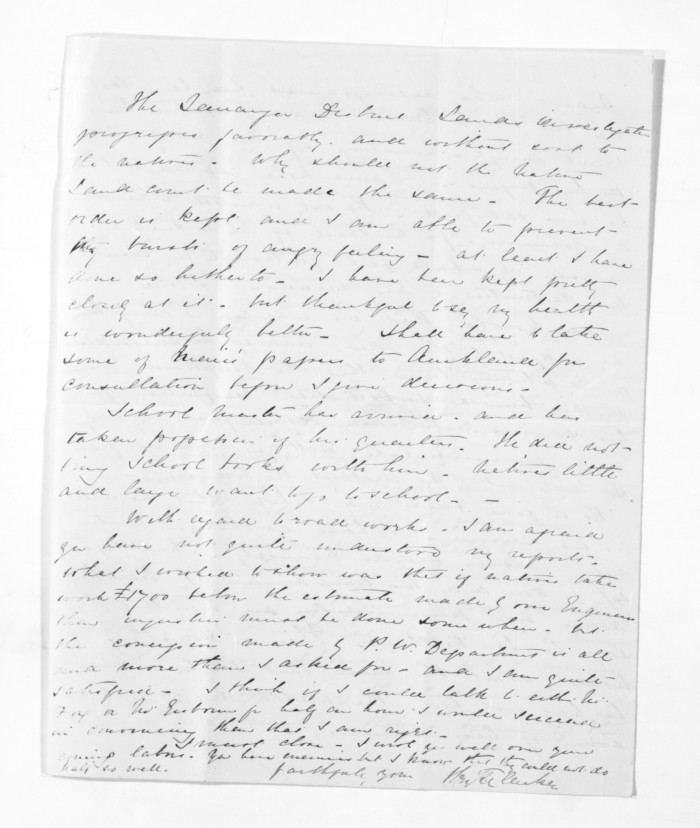 The Tauranga District Lands investigation
progresses favorably and without cost to
the natives - Why should not the Native
Land Court be made the same - The best
order is kept and I am able to prevent
bursts of angry feeling - at least I have
done so hitherto - I have been kept pretty
closely at it - but thankful to say my health
is wonderfully better - Shall have to take
some of papers to Auckland for
consultation before I give decisions -
School master has arrived - and has
taken possession of his quarters. He did not
bring School books with him - natives little
and large want to go to school - -
With regard to road works - I am afraid
you have not quite understood my reports.
What I wished to show was that if natives take
work £1700 below the estimate made by our Engineers
then injustice must be done somewhere - but
the concession made by P. W. Department is all
and more than I asked for - and I am quite
satisfied - I think if I could talk to either Mr.
Fox or Mr. Gisborne for half an hour I would succeed
in convincing them that I am right -
I must close - I wish you well over your
labors. You have enemies but I know that they could not do
half so well. Faithfully yours Clarke